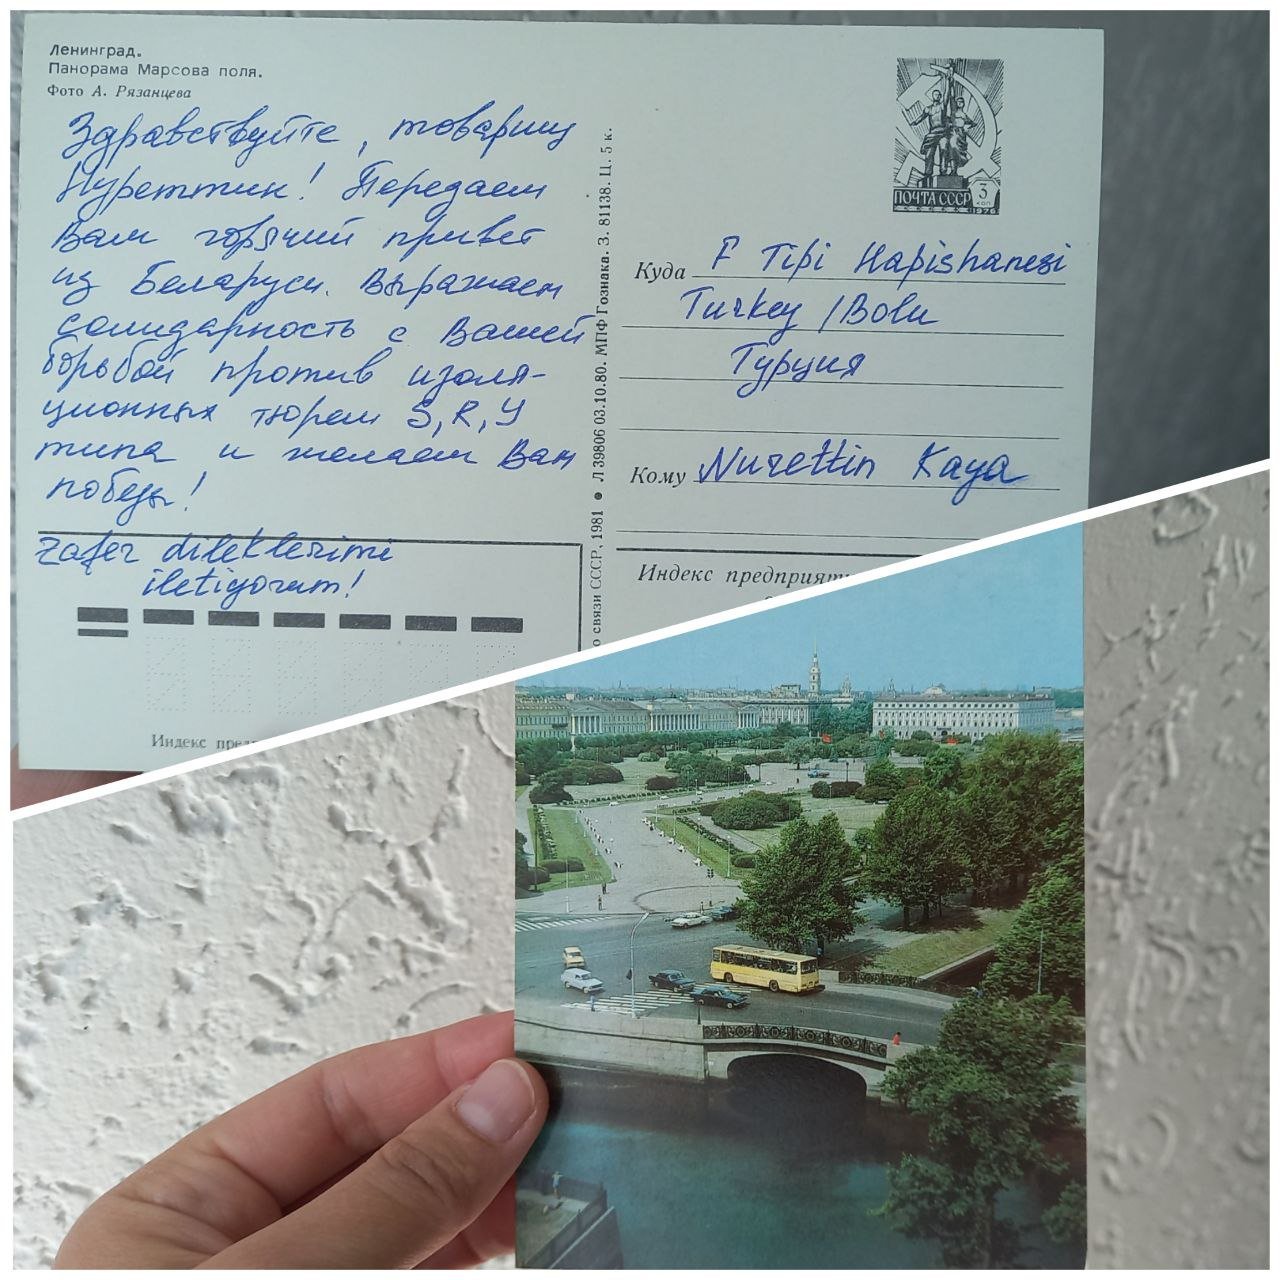 Ленинград.
Панорама Марсова поля.
Фото А. Рязанцева
Здравствуйте, товарищ
Нуреттин! Передаем
Вам горячий привет
из Беларуси. Выражаем
солидарность с Вашей
борьбой против изоля-
ционных тюрем S, R, Y
типа и желаем Вам
победы!
Zafer dileklerimi
iletiyorum!
Индекс пред
о связи СССР, 1981 ● Л39806 03.10.80. МПФ Гознака. З. 81138. Ц. 5 к.
ПОЧТА СССР 3
КОП
1976
Куда F Tipi Hapishanesi
Turkey / Bolu
Турция
Кому Nurettin Kaya
Индекс предприят